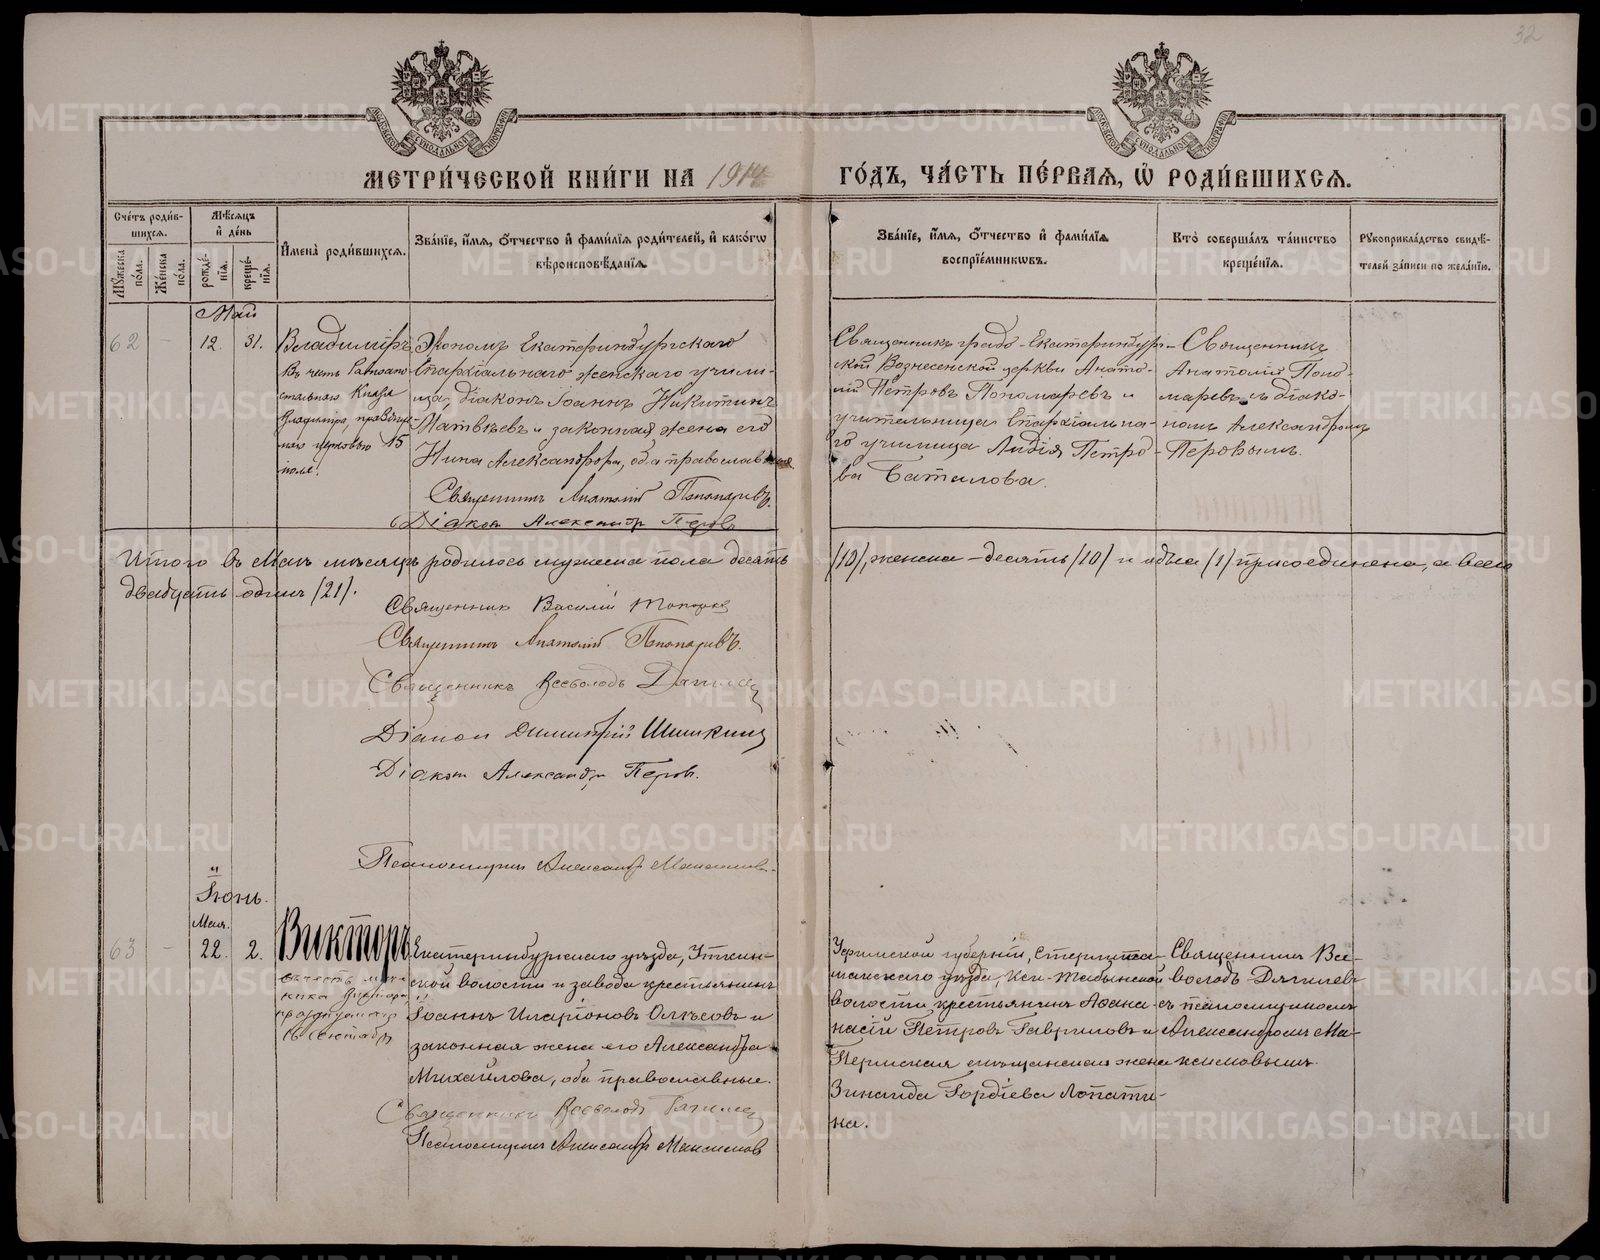 32
МЕТРИ́ЧЕСКОЙ КНИ́ГИ НА 1914 ГО́ДЪ, ЧА́СТЬ ПЕ́РВАЯ, Ѡ РОДИ́ВШИХСЯ.
Сче́тъ роди́в-
шихся.
Мѣ́сяцъ
и де́нь
Му́жеска по́ла.
Же́нска по́ла.
рожде́-
нія.
креще́-
нія.
Имена̀ роди́вшихся.
Зва́ніе, и́мя, о́тчество и фами́лія роди́телей, и како́гѡ
вѣроисповѣ́данія.
Зва́ніе, и́мя, о́тчество и фами́лія
воспріе́мникѡвъ.
Кто̀ соверша́лъ та́инство
креще́нія.
Рукоприкла́дство свидѣ́-
телей за́писи по жела́нію.
Май
62 - 12. 31.
Владиміръ
Въ честь Равноапо-
стольнаго Князя
Владиміра, праздну-
емаго церковью 15
іюля.
Экономъ Екатеринбургскаго
Епархіальнаго женскаго учили-
ща, діаконъ Іоаннъ Никитинъ
Матвѣевъ и законная жена его
Нина Александрова, оба православные
Священникъ Анатолій Пономаревъ.
Діаконъ Александръ Перовъ
Священникъ градо-Екатеринбург-
ской Вознесенской церкви Анато-
лій Петровъ Пономаревъ и
учительница Епархіальна-
го училища Лидія Петро-
ва Баталова.
Священникъ
Анатолій Поно-
маревъ съ діако-
номъ Александромъ
Перовымъ.
Итого въ Маѣ мѣсяцѣ родилось мужеска пола десять /10/, женска - десять /10/ и одна /1/ присоединена, а всего
двадцать одинъ /21/.
Священникъ Василій
Священникъ Анатолій Пономаревъ.
Священникъ Всеволодъ Дягилев
Діакон Димитрій Шишкинъ
Діакон Александр Перов.
Псаломщикъ Александръ Максимовъ.
Іюнь.
Мая.
63 - 22. 2.
Викторъ
въ честь муче-
ника Виктора
празднуемаго
16 сентября
Екатеринбургскаго уѣзда, Уткин-
ской волости и завода крестьянинъ
Іоаннъ Иларіоновъ Олькѣсовъ и
законная жена его Александра
Михайлова, оба православные.
Священникъ Всеволодъ Дягилев
Псаломщикъ Александръ Максимов
Уфимской губерніи, Стерлита-
макскаго уѣзда, Кси-Табынской
волости крестьянинъ Афана-
насій Петровъ Гавриловъ и
Пермская мѣщанская жена
Зинаида Гордіева Лопати-
на.
Священникъ Все-
володъ Дягилевъ
съ псаломщикомъ
Александромъ Ма-
ксимовымъ.
METRIKI.GASO-URAL.RU